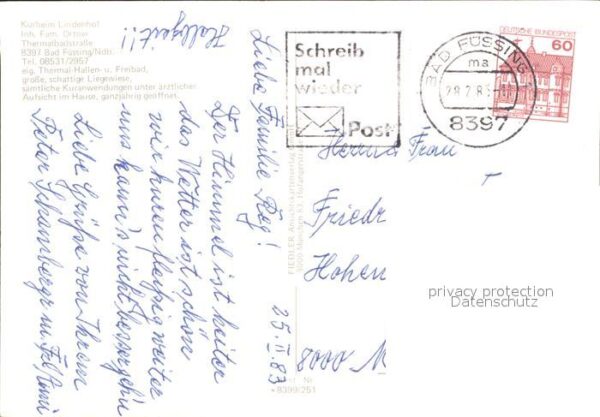 Kurheim Lindenhof
Inh. Fam. Ortner
Thermalbadstraße
8397 Bad Füssing/Ndb.
Tel. 08531/2957
eig. Thermal-Hallen- u. Freibad,
große, schattige Liegewiese,
sämtliche Kuranwendungen unter ärztlicher
Aufsicht im Hause, ganzjährig geöffnet.
Halbzeit!!
Liebe Familie
Der Himmel ist heiter
das Wetter ist schön
wir kuren fleißig weiter
uns kann's nicht besser geh'n
Liebe Grüße von Ihrem
Peter
25.II.83
FIEDLER
8399/251
Schreib
mal
wieder
Post
BAD FÜSSING 1
ma
8397
DEUTSCHE BUNDESPOST
60
Herrn u. Frau
Friedr
Hohen
8000 M
privacy protection
Datenschutz